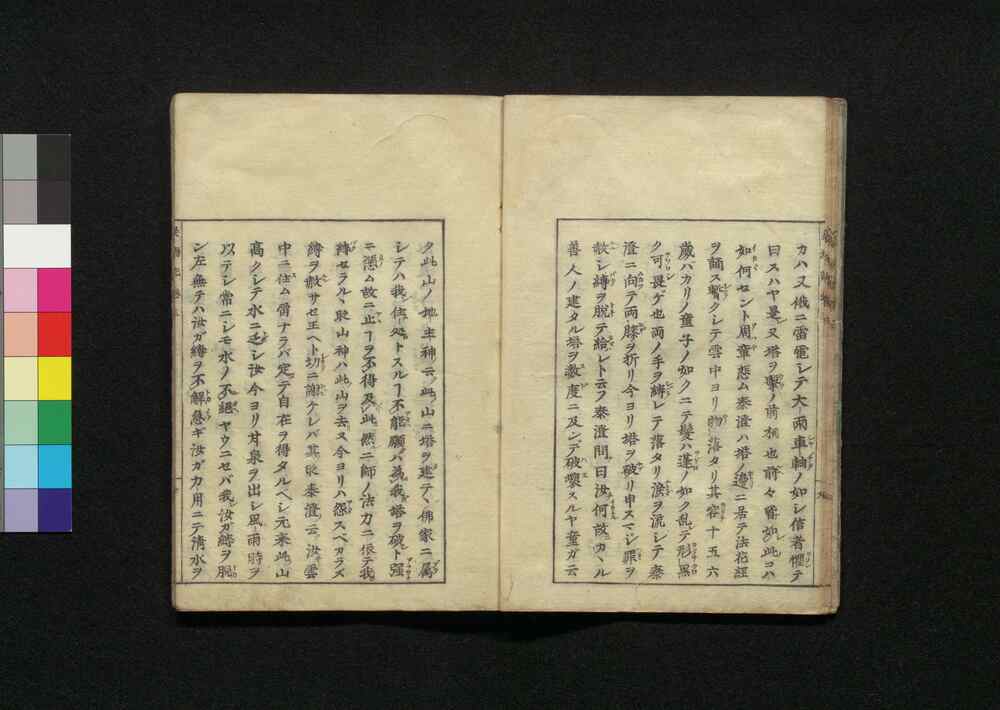 カハ又俄ニ雷電シテ大雨車軸ノ如シ信者懼テ
曰スハヤ是又塔ヲ擊ノ前相也前々皆如此コハ
如何セント周章悲ム泰澄ハ塔ノ邊ニ居テ法花經
ヲ誦ス暫クシテ雲中ヨリ物落タリ其容十五六
歲ハカリノ童子ノ如クニテ髪ハ蓬ノ如ク乱テ形黒
ク可畏ゲ也両ノ手ヲ縛レテ落タリ淚ヲ流シテ泰
澄ニ向テ両膝ヲ折リ今ヨリ塔ヲ破リ申スマシ罪ヲ
赦シ縛ヲ脱テ給レト云フ泰澄問曰汝何故カヽル
善人ノ建タル塔ヲ数度ニ及シテ破壞スルヤ童ガ云
ク此山ノ地主神云此山ニ塔ヲ建テヽ佛家ニ属
シテハ我住処トスルヿ不能願バ為我塔ヲ破ト强
ニ憑ム故ニ止ヿヲ不得及此然ニ師ノ法力ニ依テ我
縛セラルヽ耻山神ハ此山ヲ去ヌ今ヨリハ怨スベカラズ
縛ヲ赦サセ玉ヘト切ニ謝ケレバ其時泰澄云汝雲
中ニ住ム習ナラバ定テ自在ヲ得タルヘシ元来此山
高クシテ水ニ乏シ汝今ヨリ井泉ヲ出シ風雨時ヲ
以テシ常ニシモ水ノ不絕ヤウニセバ我汝ガ縛ヲ脱
シ左無テハ汝ガ縛ヲ不解急ギ汝ガ力用ニテ清水ヲ